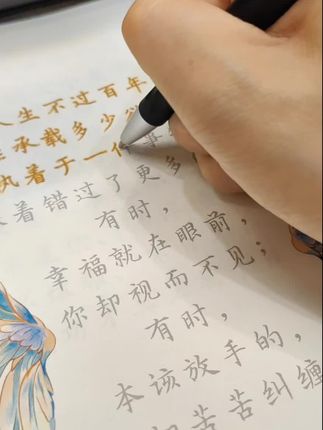 人生不过百年
承载多少
执着于一件事
着错过了更多
有时，
幸福就在眼前，
你却视而不见；
有时，
本该放手的，
苦苦纠缠